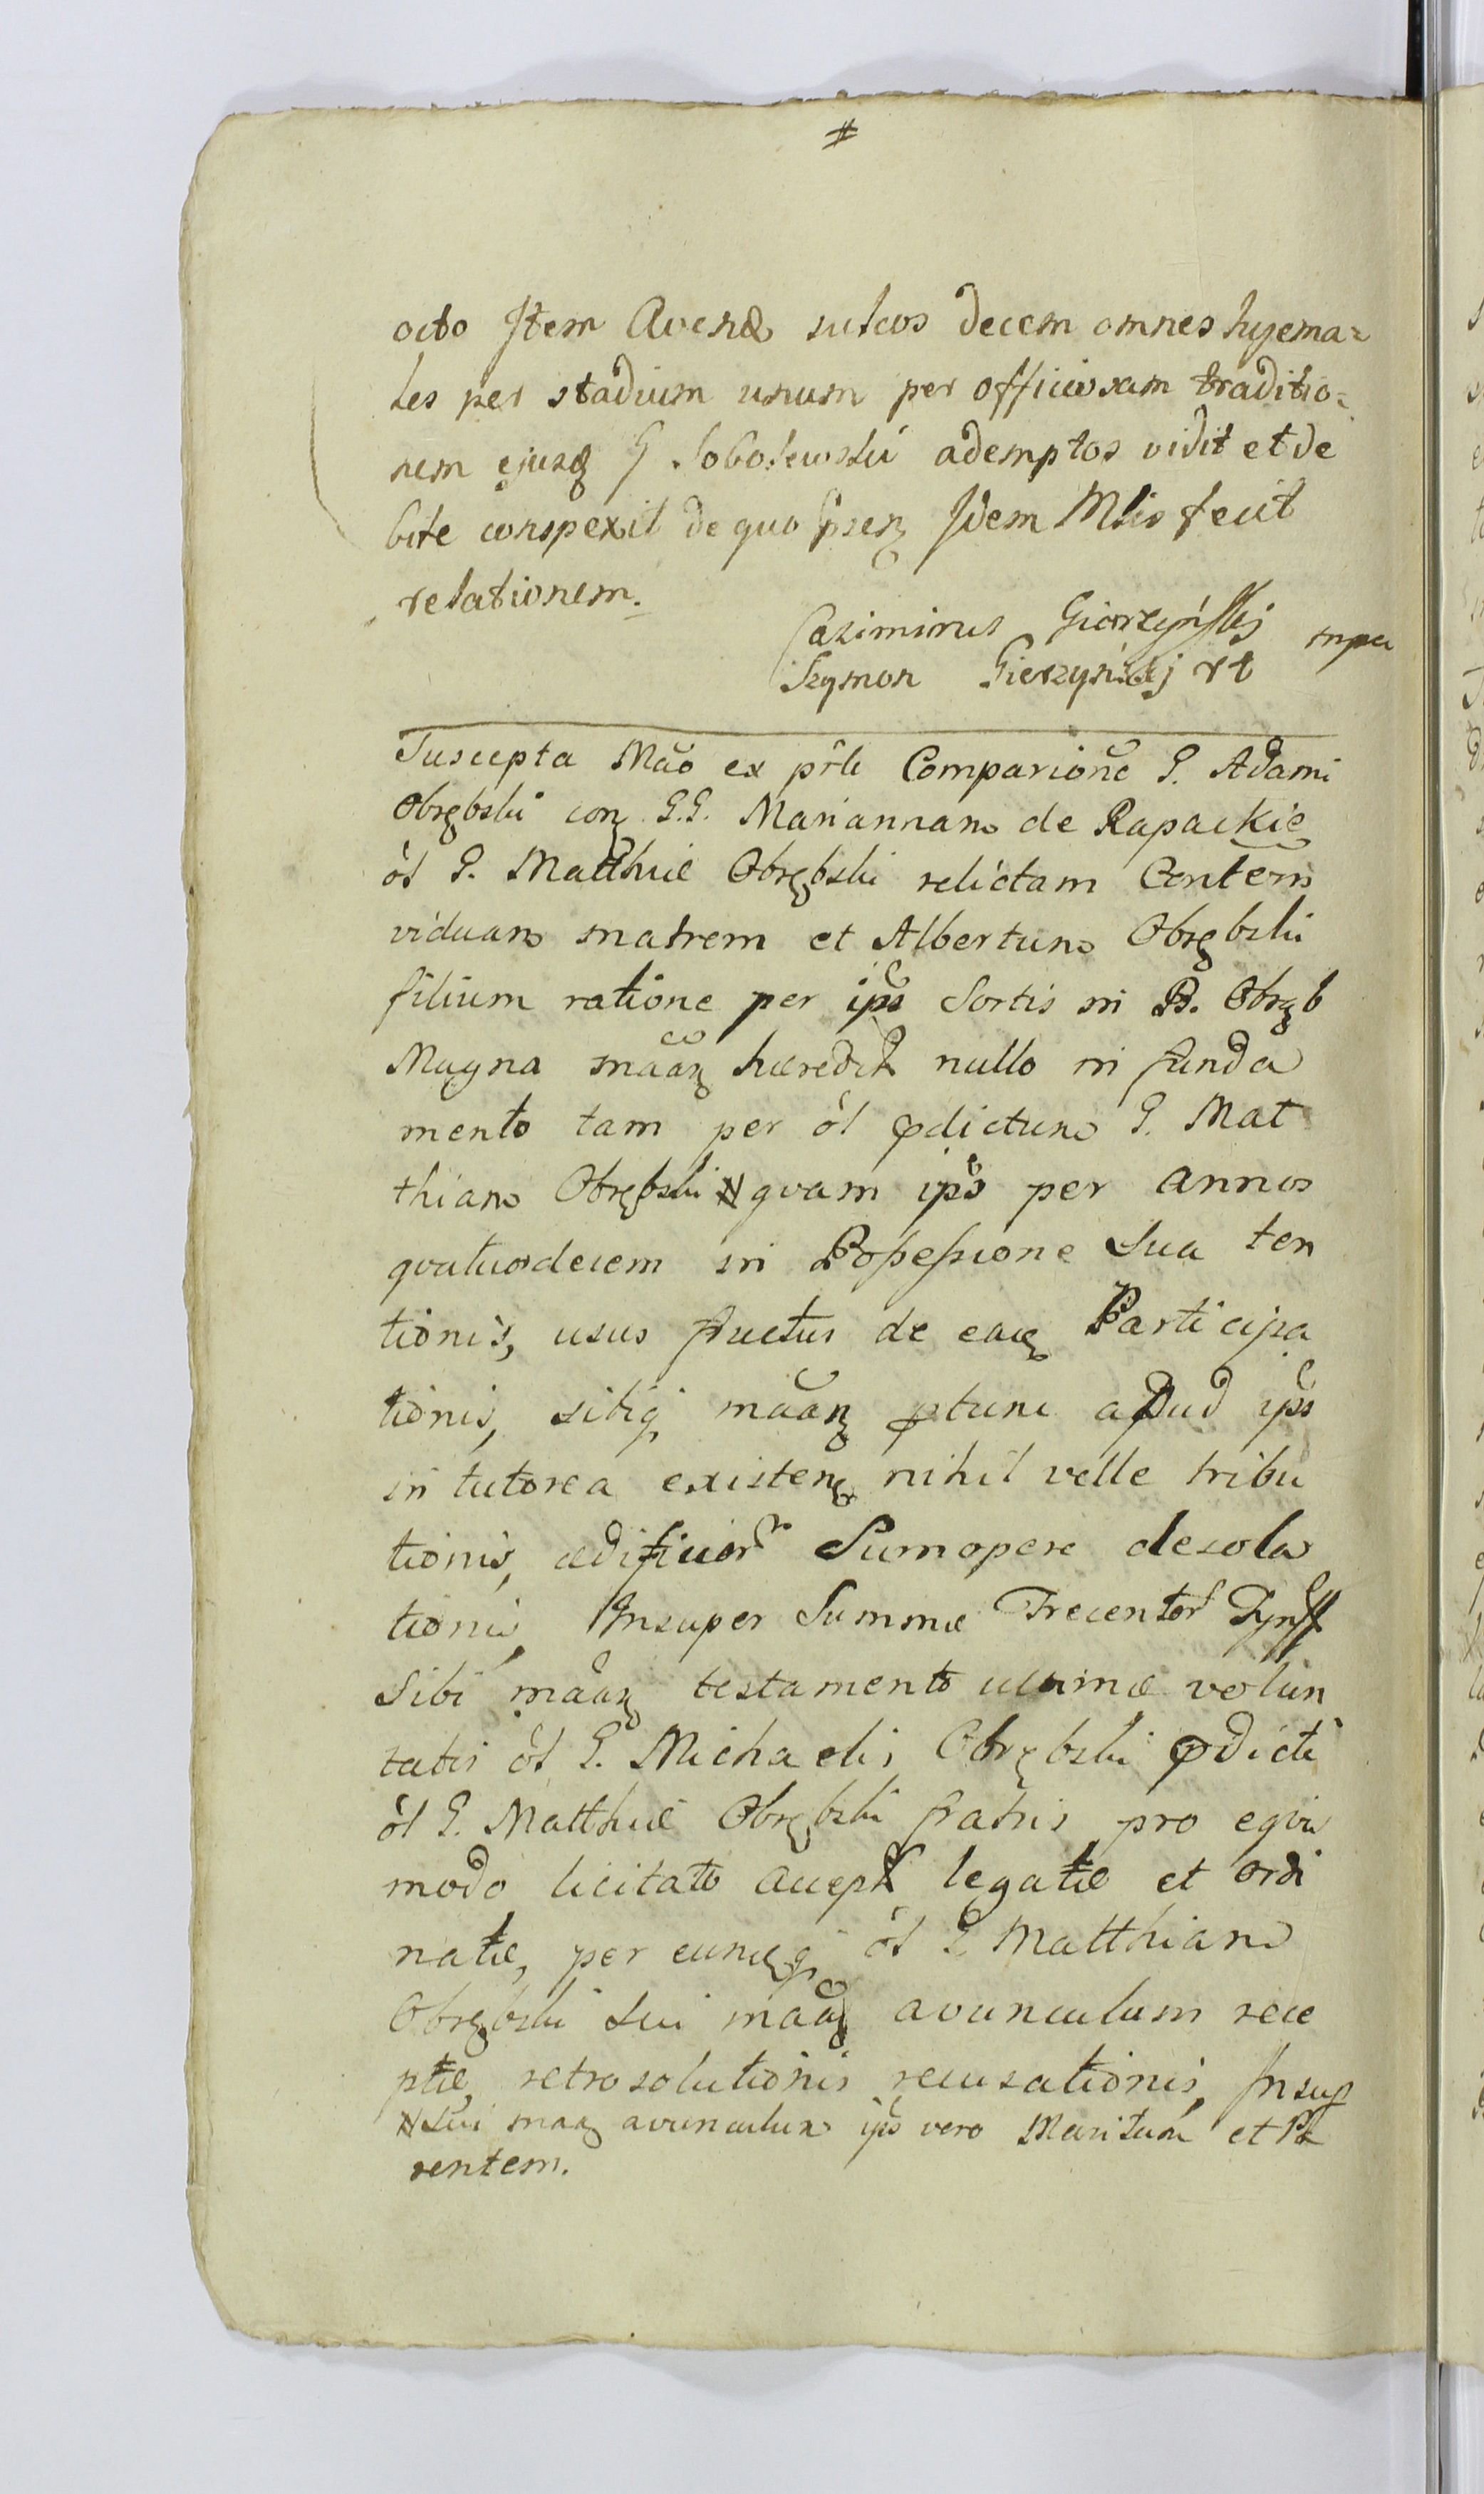 #
octo Jtem Avenæ sulcos decem omnes hyema=
les per stadium unum per officiosam traditio=
nem ejusq G Sobolewski ademptos vidit et de
bite conspexit de quo prsen Jdem Mlis fecit
relationem.
Casimirus Gierzyńskj mpa
Szymon Gierzyńskj rt
Suscepta Mão ex prli Comparione G. Adami
Obrębski con G.G. Mariannam de Rapackie
ol G. Matthiæ Obrębski relictam Contem
viduam matrem et Albertum Obrębski
filium ratione per ips Sortis in B. Obręb
Magna mãan hæredit nullo in funda
mento tam per ol pdictum G. Mat
thiam Obrębski # qvam ips per annos
qvatuordecem in Possessione Sua ten
tionis, usus fructus de eaq Participa
tionis, sibiq mãan ptunc apud ips
in tutorea existen nihil velle tribu
tionis, ædificior Sumopere desola
tionis, Insuper Summæ Trecentor Tynff
Sibi mãan testamento ultimæ volun
tatis ol G. Michaelis Obrębski pdicti
ol G. Matthiæ Obrębski fratris pro eqvis
modo licitato accept legatæ et ordi
natæ, per eunq ol G Matthiam
Obrębski Sui mãan avunculum rece
ptæ, retrosolutionis recusationis, Jnsup
# Sui maan avunculum ips vero Maritum et Pa
rentem.